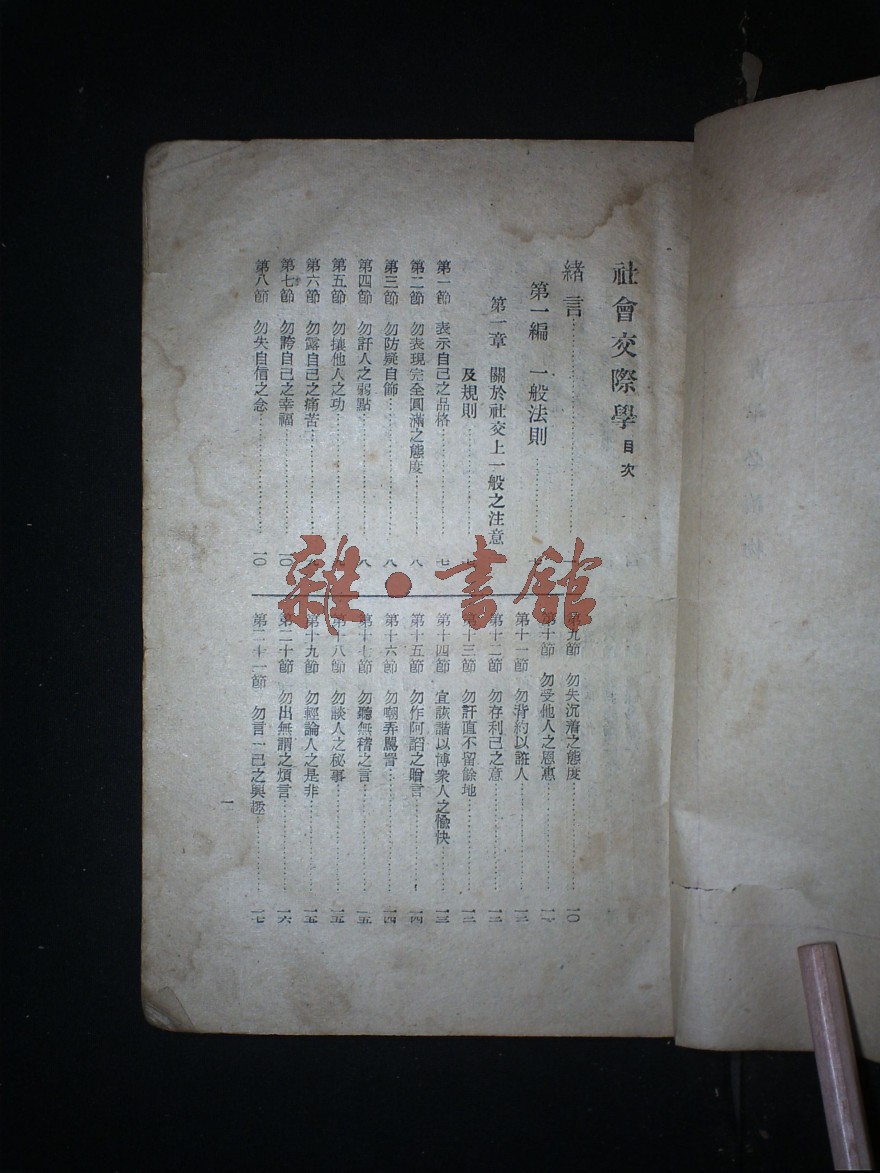 社會交際學 目次
緒言
第一編 一般法則
第一章 關於社交上一般之注意
及規則
第一節 表示自己之品格 七
第二節 勿表現完全圓滿之態度 八
第三節 勿防疑自節 八
第四節 勿訐人之弱點 八
第五節 勿攘他人之功
第六節 勿露自己之痛苦
第七節 勿誇自己之幸福 一〇
第八節 勿失自信之念 一〇
第九節 勿失沉着之態度 一〇
第十節 勿受他人之恩惠
第十一節 勿背約以誑人
第十二節 勿存利己之意
第十三節 勿訐直不留餘地
第十四節 宜詼諧以博衆人之愉快 一三
第十五節 勿作阿諂之贈言 一四
第十六節 勿嘲弄罵詈 一四
第十七節 勿聽無稽之言 一五
第十八節 勿談人之秘事 一五
第十九節 勿輕論人之是非 一五
第二十節 勿出無謂之煩言 一六
第二十一節 勿言一己之興趣 一七
一
雜·書館